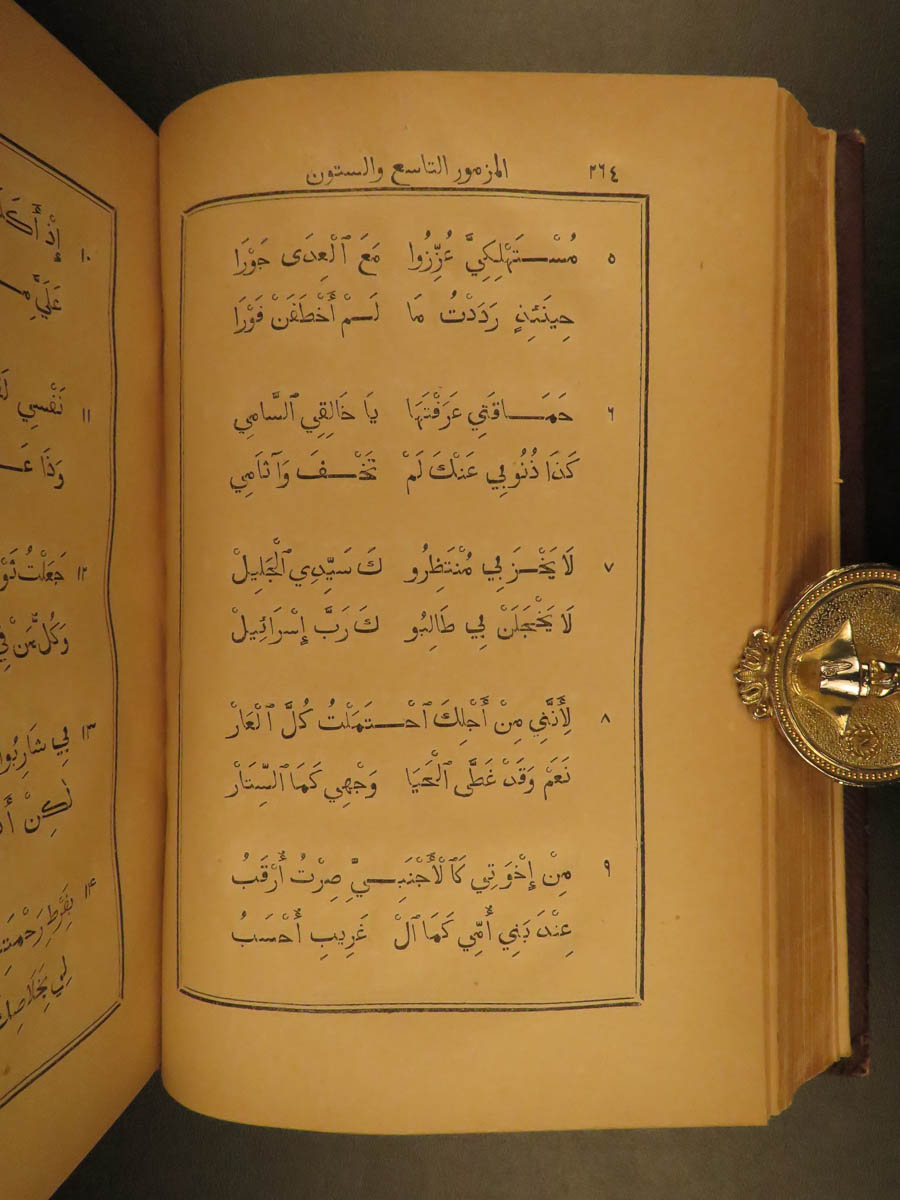 ٢٦٤ المزمور التاسع والستون
٥ مُسْتَهْلِكِيَّ عُزِّزُوا مَعَ ٱلْعِدَى جَوْرَا
حِينَئِذٍ رَدَدْتُ مَا لَسْمْ أَخْطَفَنْ فَوْرَا
٦ حَمَاقَتِي عَرَفْتَهَا يَا خَالِقِي ٱلسَّامِي
كَذَا ذُنُوبِي عَنْكَ لَمْ تَخْفَ وَآثَامِي
٧ لَا يَخْزَ بِي مُنْتَظِرُو كَ سَيِّدِي ٱلْجَلِيلْ
لَا يَخْجَلَنْ بِي طَالِبُو كَ رَبَّ إِسْرَائِيلْ
٨ لِأَنَّنِي مِنْ أَجْلِكَ ٱحْتَمَلْتُ كُلَّ ٱلْعَارْ
نَعَمْ وَقَدْ غَطَّى ٱلْحَيَا وَجْهِي كَمَا ٱلسِّتَارْ
٩ مِنْ إِخْوَتِي كَٱلْأَجْنَبِيِّ صِرْتُ أُرْقَبُ
عِنْدَ بَنِي أُمِّي كَمَا ٱلْ غَرِيبِ أُحْسَبُ
١٠ إِذْ أَكَلَ
عَلَيَّ
١١ نَفْسِي
وَذَا
١٢ جَعَلْتُ
وَكُلُّ مَنْ فِي
١٣ بِي شَارِبُوا
لٰكِنْ
١٤ بِفَرْطِ رَحْمَتِ
لِي بِخَلَاصِكَ